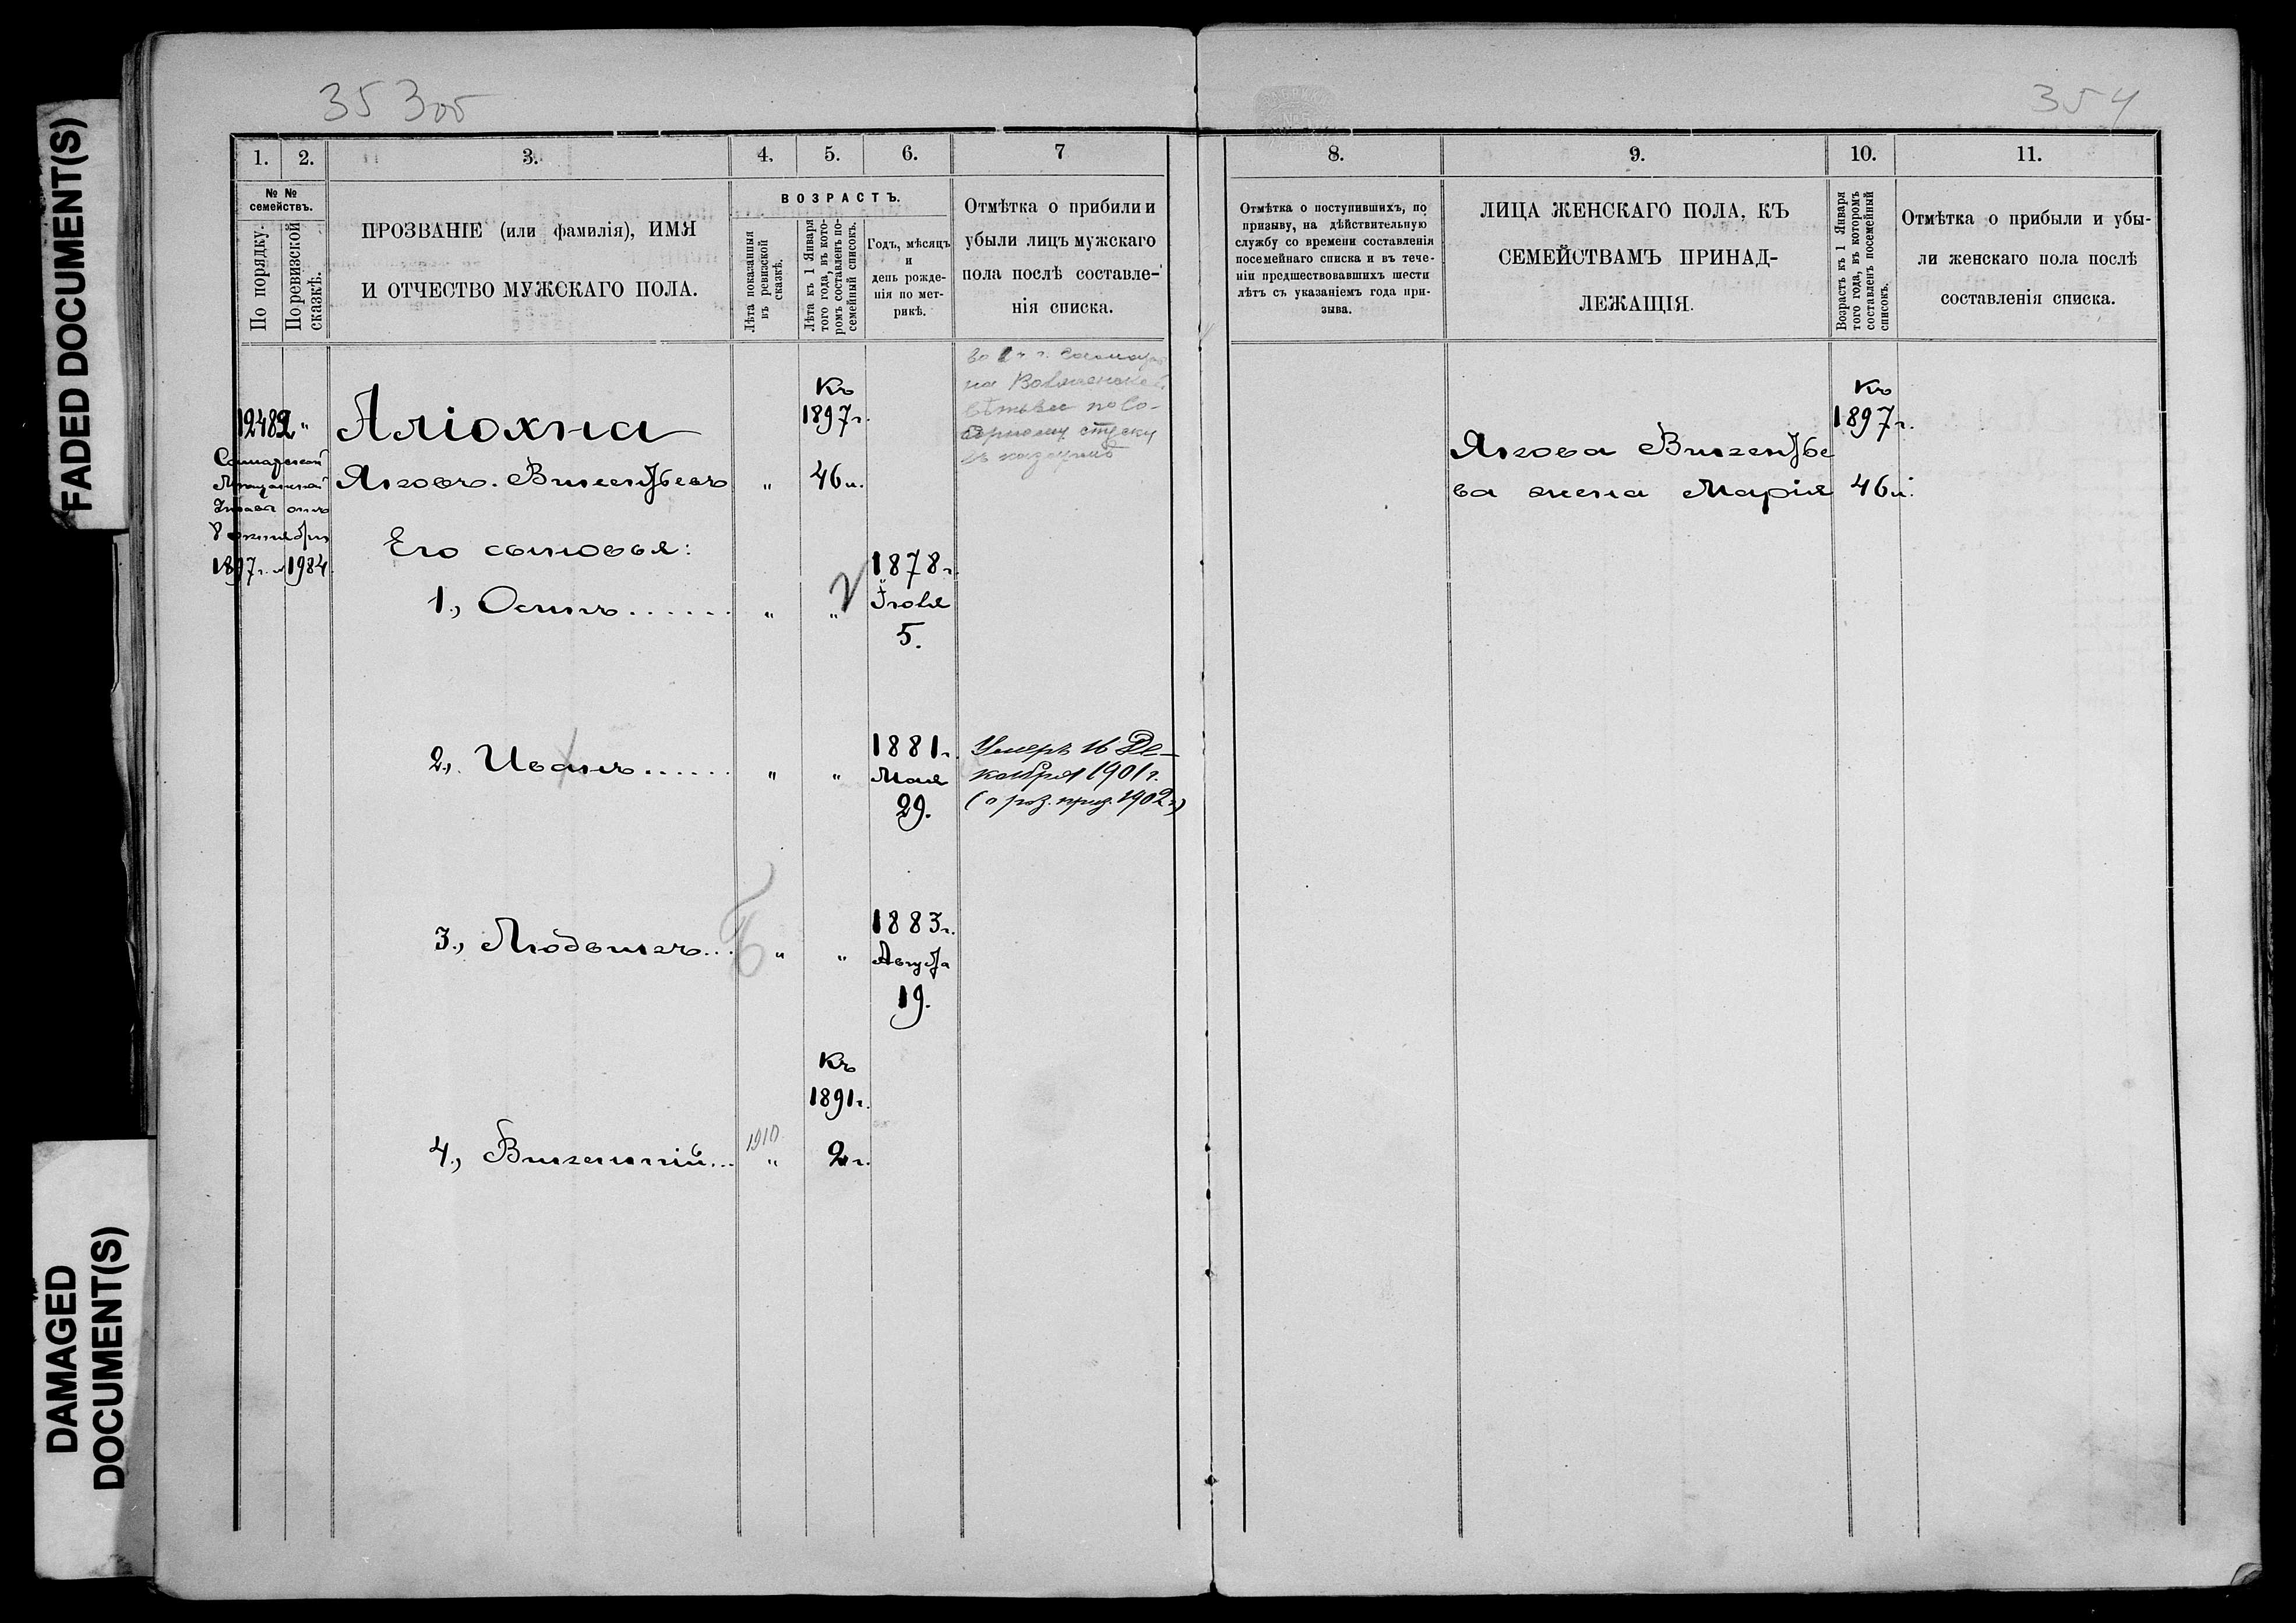 FADED DOCUMENT(S)
DAMAGED
DOCUMENT(S)
353об
1. 2. 3. 4. 5. 6. 7
№ №
семействъ.
По порядку.
По ревизской
сказкѣ.
ПРОЗВАНІЕ (или фамилія), ИМЯ
И ОТЧЕСТВО МУЖСКАГО ПОЛА.
ВОЗРАСТЪ.
Лѣта показанныя
въ ревизской
сказкѣ.
Лѣта къ 1 Января
того года, въ кото-
ромъ составленъ по-
семейный списокъ.
Годъ, мѣсяцъ
и
день рожде-
нія по мет-
рикѣ.
Отмѣтка о прибили и
убыли лицъ мужскаго
пола послѣ составле-
нія списка.
на
Къ
1897 г.
1248 „ Аліохна
Самарской
Яковъ Викентьевъ „ 46 л.
отъ
8 октября
1897 г. № 1984.
Его сыновья:
1., Осипъ...... „ „ 1878 г.
Іюля
5.
2., Иванъ...... „ „ 1881 г.
Мая
29.
Умеръ 16 Де-
кабря 1901 г.
1902 г.)
3., Людвигъ... „ „ 1883 г.
Августа
19.
Къ
1891 г.
1910
4., Викентій... „ 2 г.
354
8. 9. 10. 11.
Отмѣтка о поступившихъ, по
призыву, на дѣйствительную
службу со времени составленія
посемейнаго списка и въ тече-
ніи предшествовавшихъ шести
лѣтъ съ указаніемъ года при-
зыва.
ЛИЦА ЖЕНСКАГО ПОЛА, КЪ
СЕМЕЙСТВАМЪ ПРИНАД-
ЛЕЖАЩІЯ.
Возрастъ къ 1 Января
того года, въ которомъ
составленъ посемейный
списокъ.
Отмѣтка о прибыли и убы-
ли женскаго пола послѣ
составленія списка.
Къ
1897 г.
Якова Викентье
ва жена Марія 46 л.